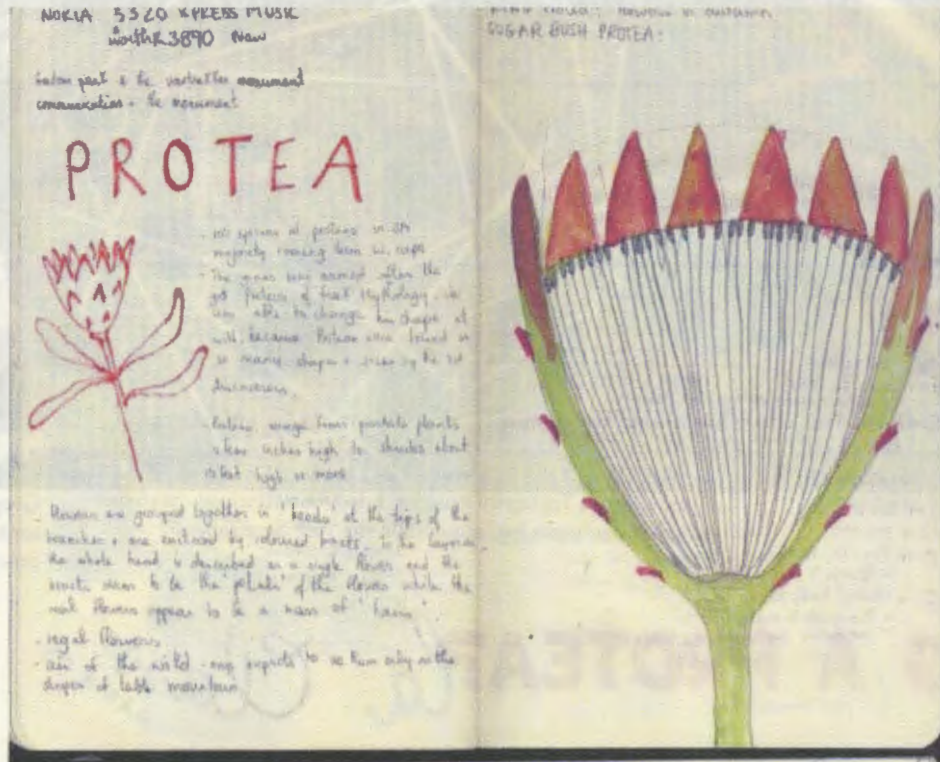 NOKIA 5320 XPRESS MUSIC
worth R3890 New
peat & the monument
communication - the monument
PROTEA
species of proteas in SA
majority coming from W. Cape
- The genus was named after the
god Proteus of Greek Mythology. He
was able to change his shape at
will because Proteas were found in
so many shapes & sizes by the 1st
discoverers.
- Proteas range from prostrate plants
a few inches high to shrubs about
feet high or more
- Flowers are grouped together in 'heads' at the tips of the
branches & are enclosed by coloured bracts. To the layman
the whole head is described as a single flower and the
bracts seem to be the 'petals' of the flower while the
real flowers appear to be a mass of 'hairs'
- regal flowers
- of the world - one expects to see them only on the
slopes of table mountain
SUGAR BUSH PROTEA: